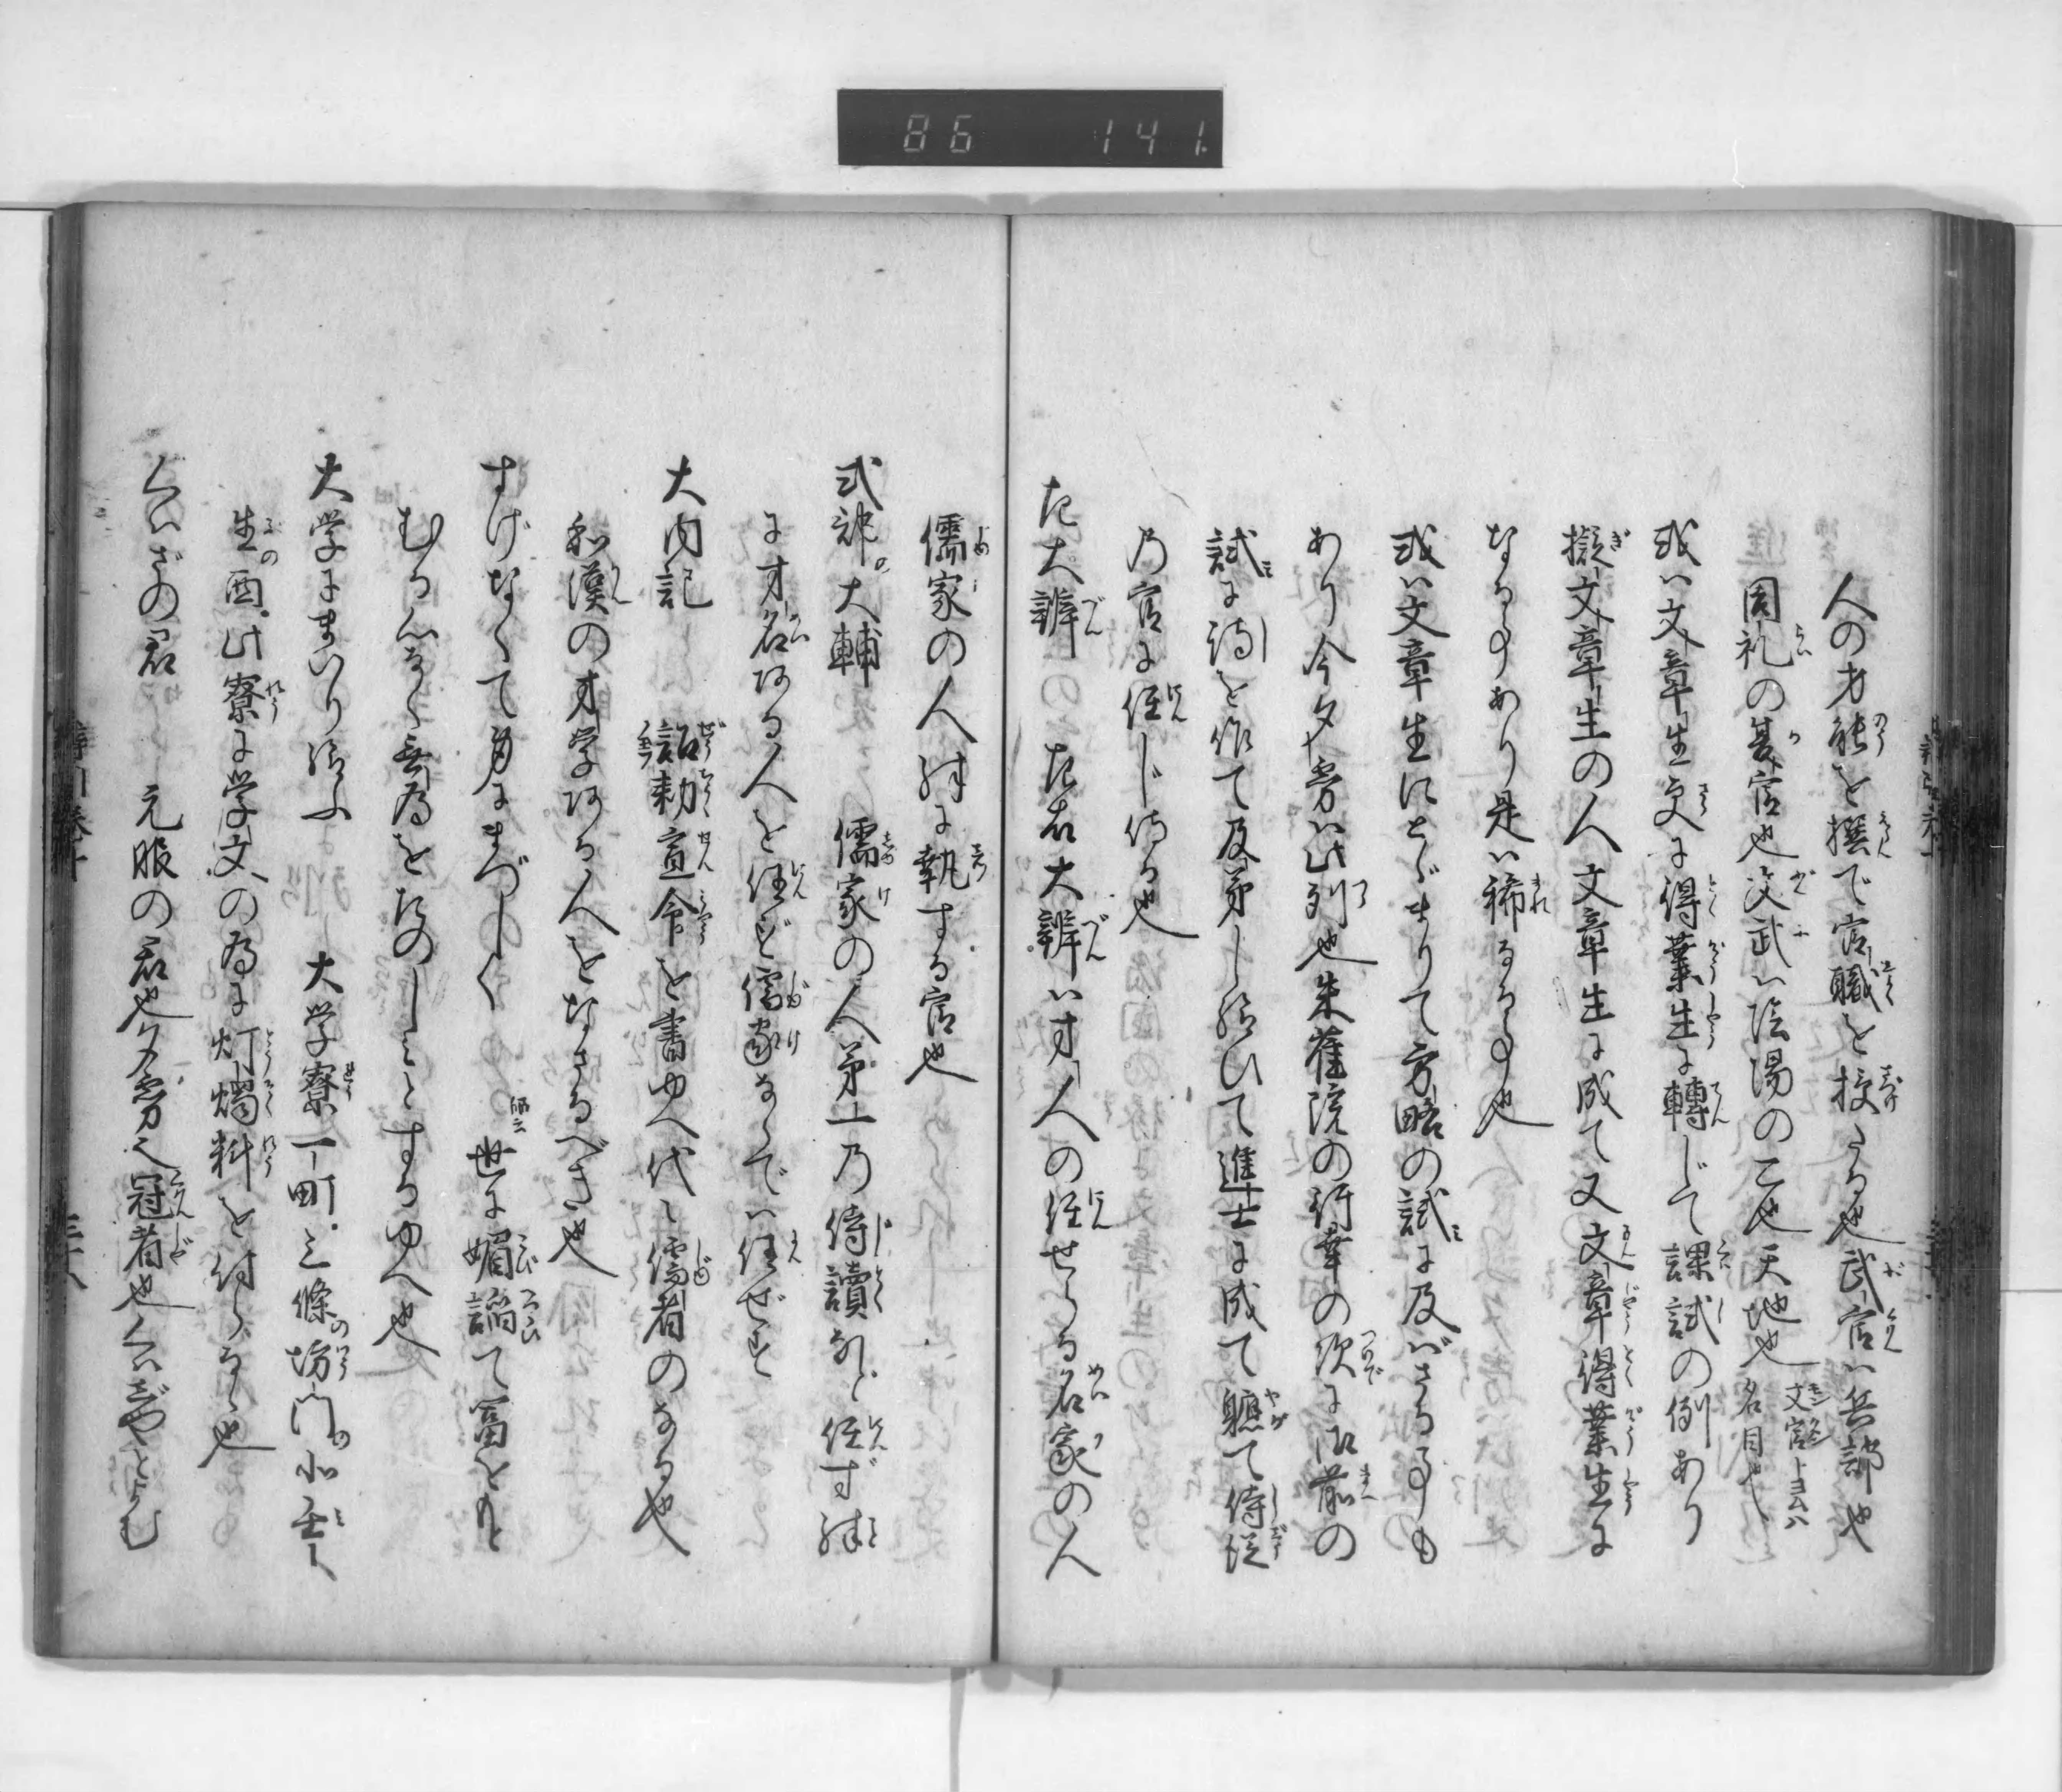 86 141
人の才能を撰で官職を授る也武官ハ兵部也
周礼の夏官也文武ハ陰陽の二也天地也文官トヨムハ名目也
或ハ文章生更に得業生に轉じて課試の例あり
擬文章生の人文章生に成て又文章得業生に
なる事あり是ハ稀なる事也
或ハ文章生にとゞまりて方略の試に及バざる事も
あり今夕霧ハ此列也朱雀院の行幸の次に御前の
試に詩を作て及第し給ひて進士に成て軈て侍従
乃官に任じ侍る也
左大辨 左右大辨ハ才人の任せらる名家の人
儒家の人殊に執する官也
式部大輔 儒家の人第一乃侍讀なと任ず殊
に才名ある人を任ず儒家ならでハ任ぜず
大内記 詔勅宣命を書ゆへ代々儒者のなる也
和漢の才学ある人をなさるべき也
すげなくて身にまづしく 師云世に媚諂て冨をもと
むる心なく無為をたのしミとするゆへ也
大学にまいり給ふ 大学寮一町二條坊門北壬
生西此寮に学文の為に灯燭料を付らるゝ也
くハざの君 元服の君也夕霧也冠者也くハじやとよむ